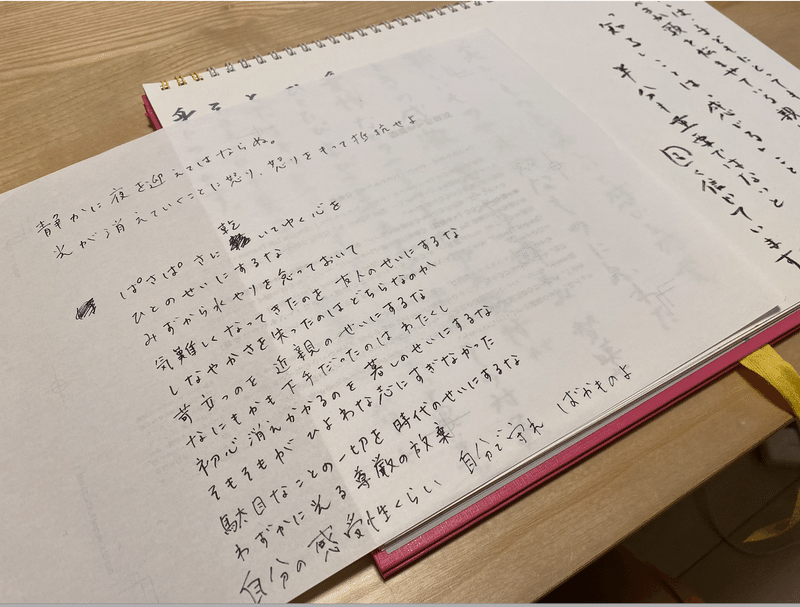 は、子どもにとっても
頭を悩ませている親
"知る"ことは"感じる"こと
半分も重要ではないと
固く信じています
静かに夜を迎えてはならぬ。
光が消えていくことに怒り、怒りをもって抵抗せよ
ぱさぱさに乾いてゆく心を
ひとのせいにするな
みずから水やりを怠っておいて
気難しくなってきたのを 友人のせいにするな
しなやかさを失ったのはどちらなのか
苛立つのを 近親のせいにするな
なにもかも下手だったのはわたくし
初心消えかかるのを 暮しのせいにするな
そもそもが ひよわな志にすぎなかった
駄目なことの一切を 時代のせいにするな
わずかに光る尊厳の放棄
自分の感受性くらい 自分で守れ ばかものよ